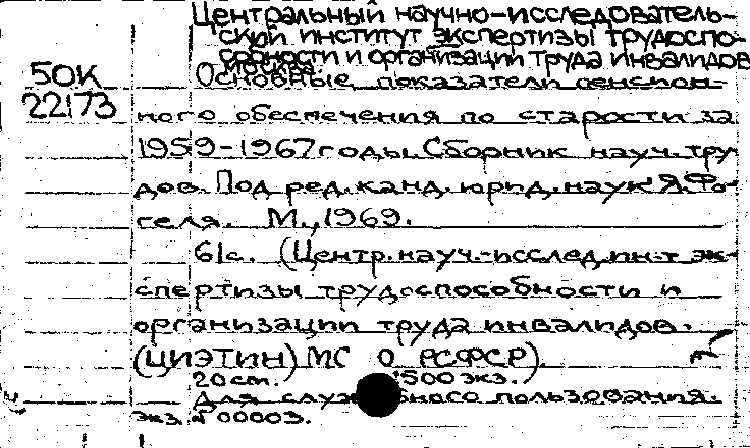 Центральный научно-исследователь-
ский институт экспертизы трудоспо-
собности и организации труда инвалидов
Москва.
50К Основные показатели пенсион-
22173 ного обеспечения по старости за
1959-1967 годы. Сборник науч. тру-
дов. Под ред. канд. юрид. наук Я. Фо-
геля. М., 1969.
61с. (Центр. науч.-исслед. ин-т эк-
спертизы трудоспособности и
организации труда инвалидов.
(ЦИЭТИН) МС О РСФСР).
20 см. 500 экз.
Для пользования.
экз. № 00003.